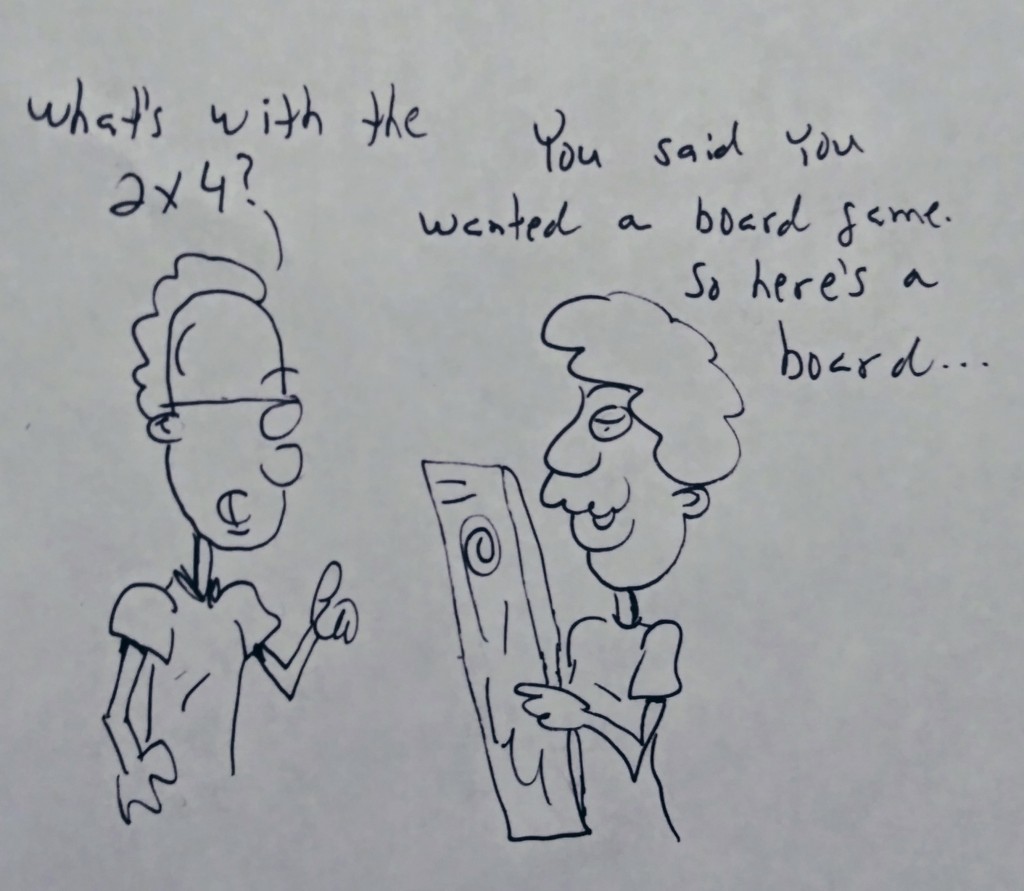 What's with the
2x4?
You said You
wanted a board game.
So here's a
board...